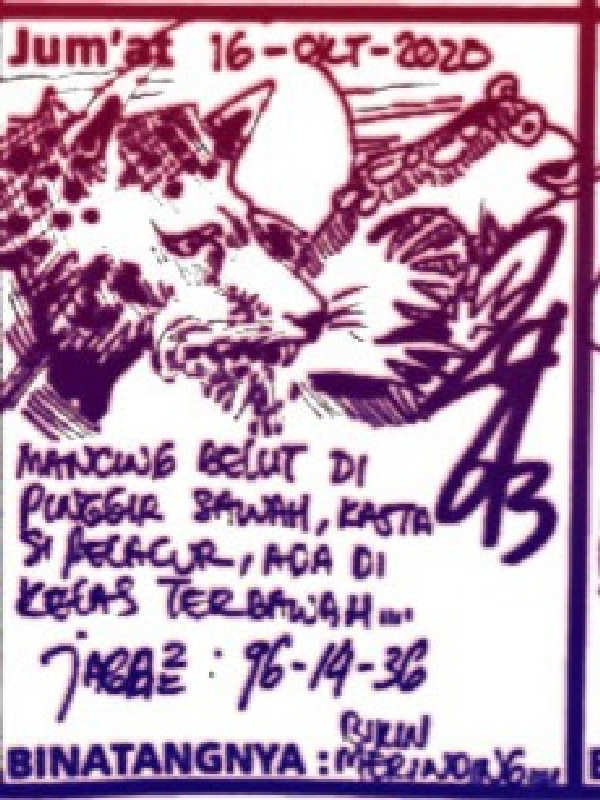 Jum'at 16-OKT-2020
MANCING BELUT DI
PINGGIR SAWAH, KASTA
SI PELACUR, ADA DI
KELAS TERBAWAH....
: 96-14-36
BIKIN
BINATANGNYA : MERINDING....